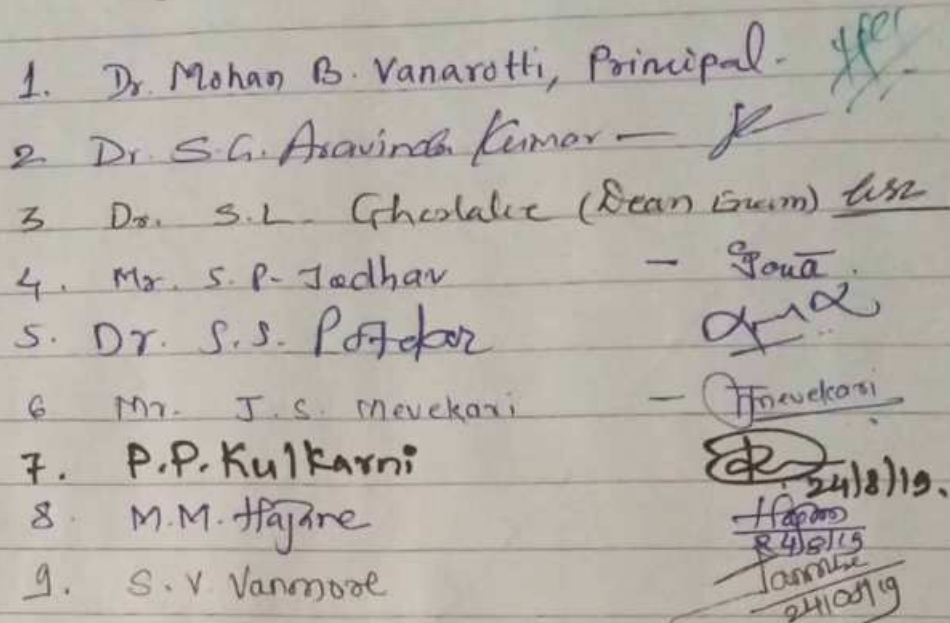 1. Dr. Mohan B. Vanarotti, Principal -
2 Dr. S.G. Aravinda Kumar —
3 Dr. S.L. (Dean
4. Mr. S.P. Jadhav —
5. Dr. S.S. Potdar
6 Mr. J.S. Mevekari — Mevekari
7. P.P. Kulkarni 24/8/19.
8. M.M. Hajare
24/8/19
9. S.V. Vanmore
24/08/19